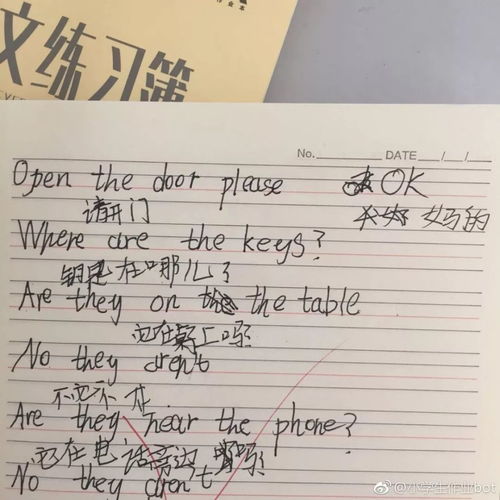 文练习簿
No. DATE / /
Open the door please OK
请开门 妈的
Where are the keys?
钥匙在哪儿了
Are they on the the table
它在桌上吗
No they aren't
不它不在
Are they near the phone?
它在电话旁边吗
No they aren't
@小学生作业bot